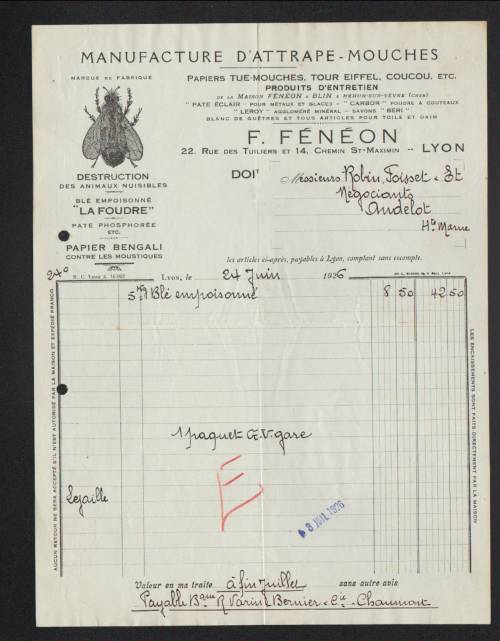 MANUFACTURE D'ATTRAPE-MOUCHES
MARQUE DE FABRIQUE
PAPIERS TUE-MOUCHES, TOUR EIFFEL, COUCOU, ETC.
PRODUITS D'ENTRETIEN
DE LA MAISON FÉNÉON & BLIN A MEHUN-SUR-YÈVRE (CHER)
"PATE ÉCLAIR - POUR MÉTAUX ET GLACES - "CARBOR" POUDRE A COUTEAUX
"LEROY" AGGLOMÉRÉ MINÉRAL - SAVONS "BÉRI"
BLANC DE GUÊTRES ET TOUS ARTICLES POUR TOILE ET DAIM
F. FÉNÉON
22, RUE DES TUILIERS ET 14, CHEMIN ST-MAXIMIN -- LYON
DESTRUCTION
DES ANIMAUX NUISIBLES
BLÉ EMPOISONNÉ
"LA FOUDRE"
PATE PHOSPHORÉE
ETC.
PAPIER BENGALI
CONTRE LES MOUSTIQUES
DOIT Messieurs Robin, Foisset & Et
Négociants
Andelot
Hte Marne
les articles ci-après, payables à Lyon, comptant sans escompte.
240
R. C. Lyon A.
Lyon, le 24 Juin 1926
5 Kg Blé empoisonné 8 50 42 50
1 paquet G.V. gare
E
3 JUIL 1926
Lejaille
AUCUN RETOUR NE SERA ACCEPTÉ S'IL N'EST AUTORISÉ PAR LA MAISON ET EXPÉDIÉ FRANCO
LES ENCAISSEMENTS SONT FAITS DIRECTEMENT PAR LA MAISON
Valeur en ma traite à fin Juillet sans autre avis
Payable Bque R. Varin Bernier & Cie Chaumont